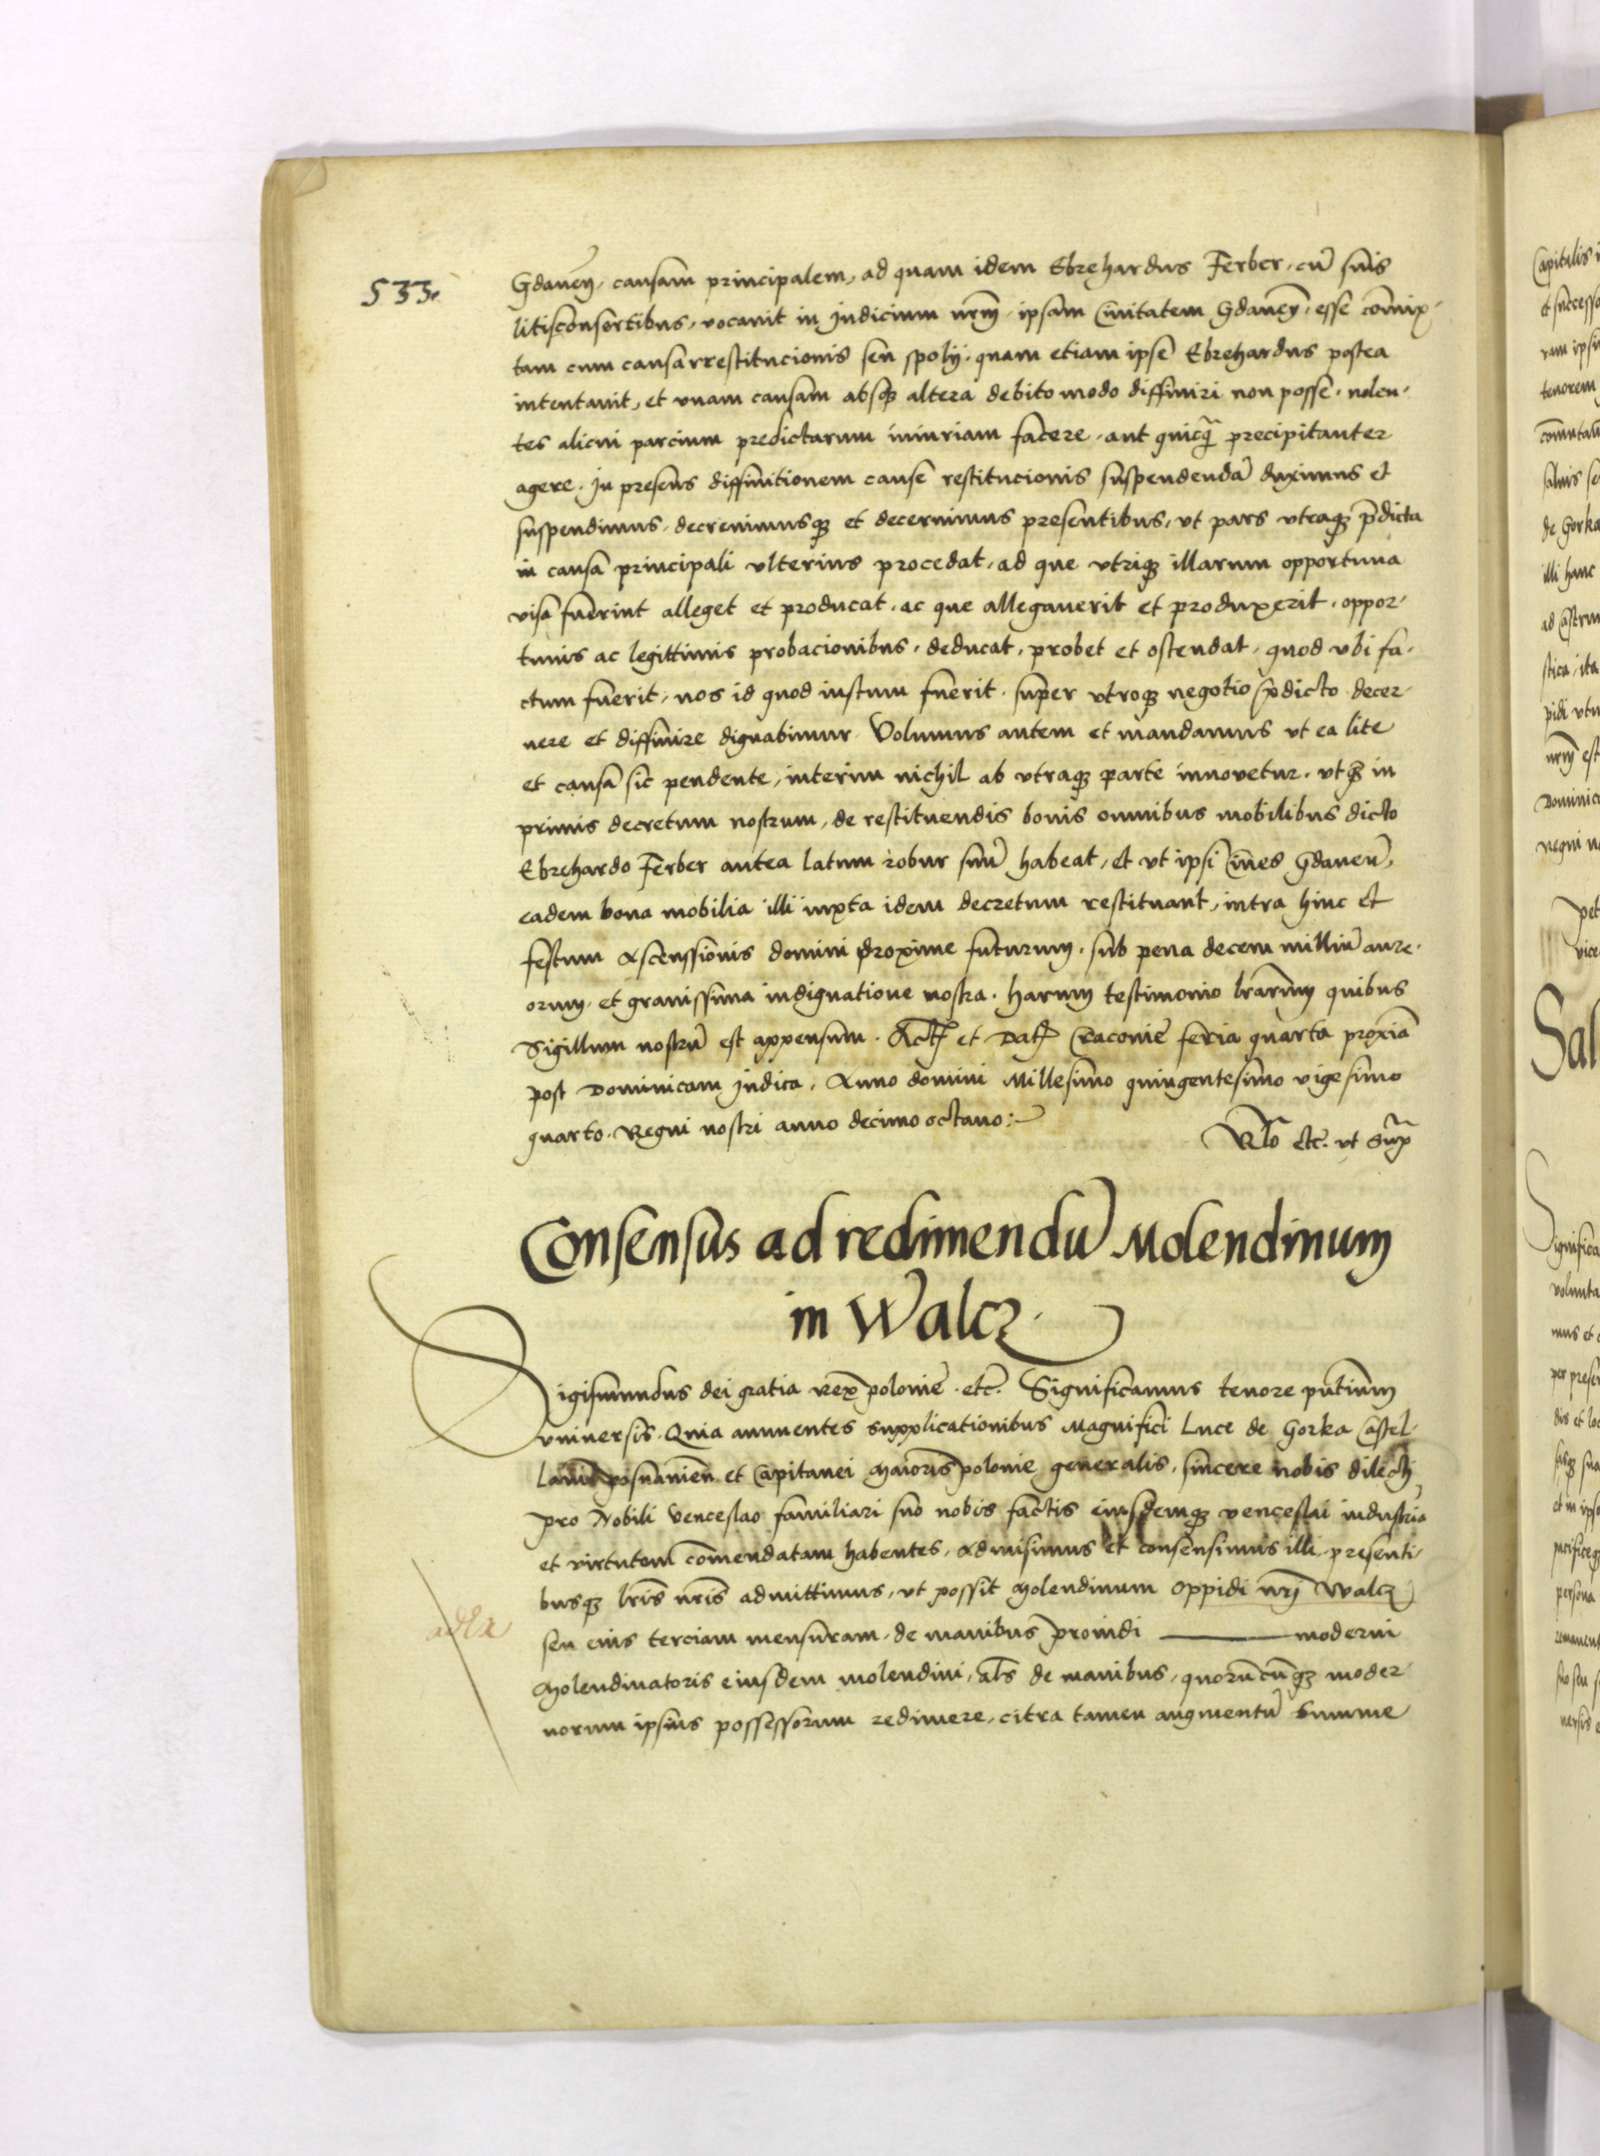 533.
Gdaneñ, causam principalem, ad quam idem Ebrehardus Ferber, cū suis
litisconsortibus, vocavit in Judicium nrm̄, ipsam Civitatem Gdaneñ, esse com̄ix-
tam cum causa restitucionis seu spolij, quam etiam ipse Ebrehardus postea
intentavit, et vnam causam absq3 altera debito modo diffiniri non posse, nolen-
tes alicui parcium predictarum iniuriam facere, aut quicq̄ precipitanter
agere. In presens diffinitionem cause restitucionis suspendendā duximus et
suspendimus, decrevimusq3 et decernimus presentibus, vt pars vtraq3 p̄dicta
in causa principali vlterius procedat, ad que vtriq3 illarum opportuna
visa fuerint alleget et producat, ac que allegaverit et produxerit, oppor-
tunis ac legittimis probacionibus, deducat, probet et ostendat, quod vbi fa-
ctum fuerit, nos id quod iustum fuerit, super vtroq3 negotio p̄dicto decer-
nere et diffinire dignabimur. Volumus autem et mandamus vt ea lite
et causa sic pendente, interim nichil ab vtraq3 parte innovetur, vtq3 in
primis decretum nostrum, de restituendis bonis omnibus mobilibus dicto
Ebrehardo Ferber antea latum robur suū habeat, et vt ipsi Cives Gdaneñ,
eadem bona mobilia illi iuxta idem decretum restituant, intra hinc et
festum Ascenssionis domini proxime futurum, sub pena decem milliū aure-
orum, et gravissima indignatione nostra. Harum testimonio lrarum quibus
Sigillum nostrū est appensum. Act̄ et Dat̄ Cracovie feria quarta proxīa
post Dominicam Judica, Anno domini Millesimo quingentesimo vigesimo
quarto. Regni nostri anno decimo octavo:-
Rlō etc. vt Sup̄
Consensus ad redimendū Molendinum
in Walcz.
Sigismundus dei gratia rex polonie. etc. Significamus tenore pn̄tium
vniversis. Quia annuentes supplicationibus Magnifici Luce de Gorka Castel-
lani posnanien̄ et Capitanei Maioris polonie generalis, sincere nobis dilecti,
pro Nobili Venceslao familiari suo nobis factis eiusdemq3 venceslai industriā
et virtutem com̄endatam habentes, Admisimus et consensimus illi, presenti-
busq3 lrīs nrīs admittimus, vt possit Molendinum oppidi nrī Walcz
seu eius terciam mensuram, de manibus providi ——— moderni
Molendinatoris eiusdem molendini, als̄ de manibus, quorūcūq3 moder-
norum ipsius possessorum redimere, citra tamen augmentū summe